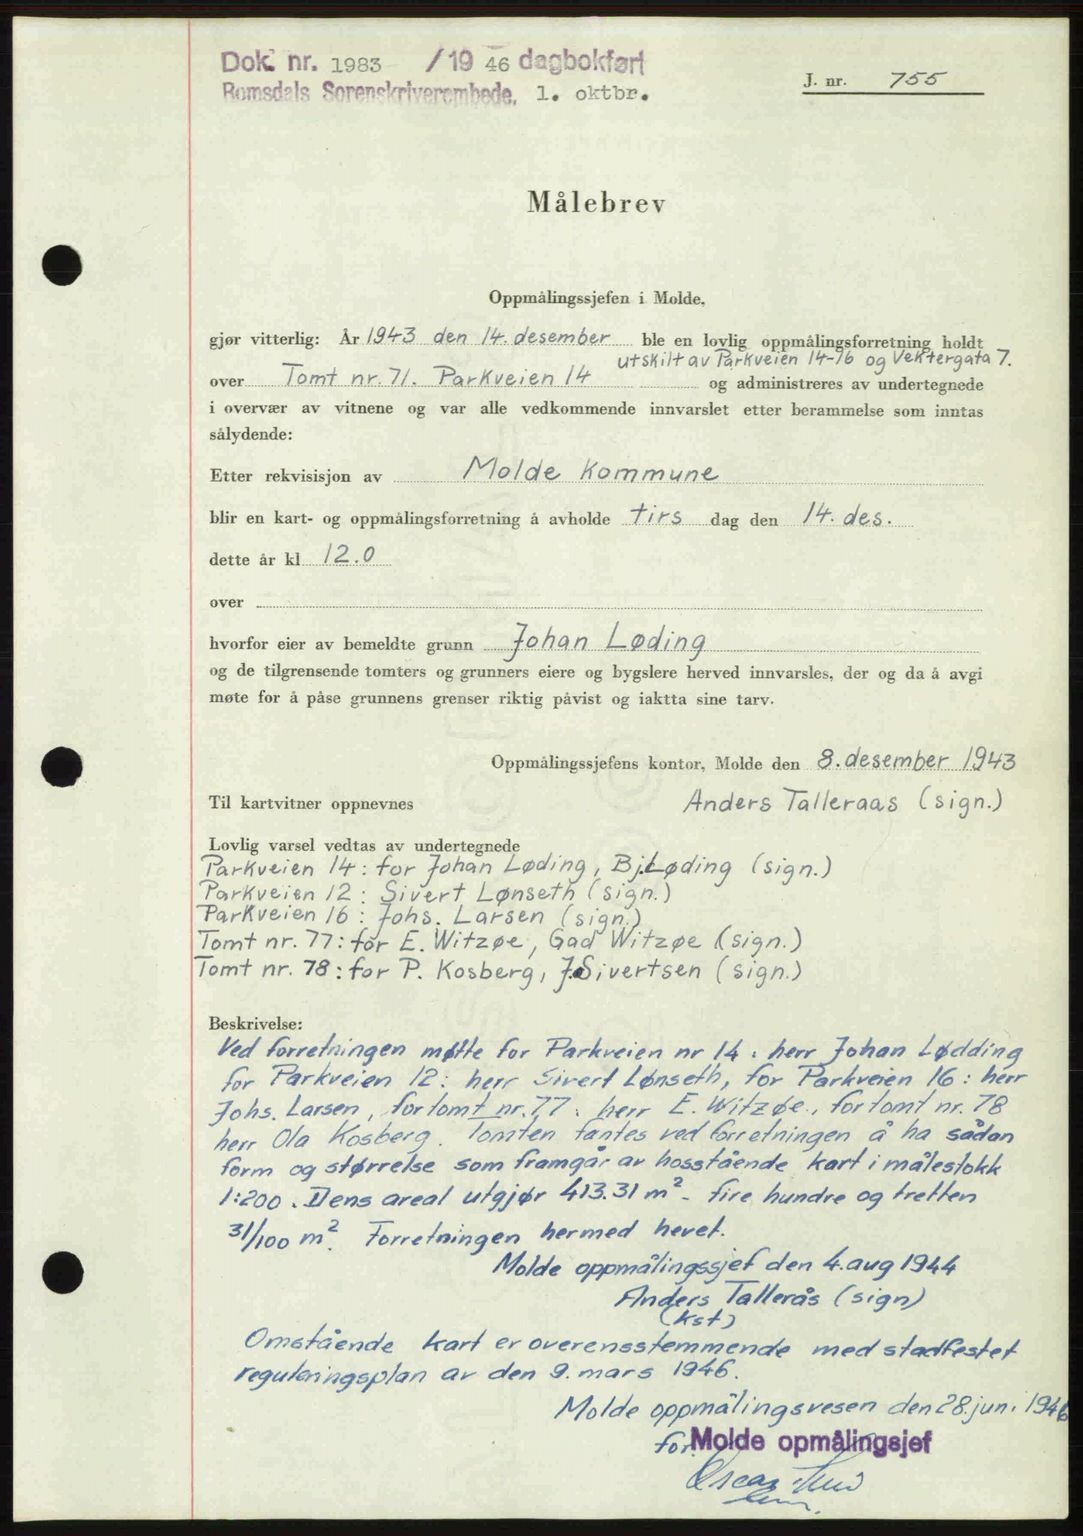 Dok. nr. 1983 /19 46 dagbokført
Romsdals Sorenskriverembede, 1. oktbr.
J. nr. 755
Målebrev
Oppmålingssjefen i Molde,
gjør vitterlig: År 1943 den 14. desember ble en lovlig oppmålingsforretning holdt
utskilt av Parkveien 14-16 og Vektergata 7.
over Tomt nr. 71. Parkveien 14 og administreres av undertegnede
i overvær av vitnene og var alle vedkommende innvarslet etter berammelse som inntas
sålydende:
Etter rekvisisjon av Molde kommune
blir en kart- og oppmålingsforretning å avholde tirs dag den 14. des.
dette år kl 12.0
over
hvorfor eier av bemeldte grunn Johan Løding
og de tilgrensende tomters og grunners eiere og bygslere herved innvarsles, der og da å avgi
møte for å påse grunnens grenser riktig påvist og iaktta sine tarv.
Oppmålingssjefens kontor, Molde den 8. desember 1943
Til kartvitner oppnevnes Anders Talleraas (sign.)
Lovlig varsel vedtas av undertegnede
Parkveien 14: for Johan Løding, Bj. Løding (sign.)
Parkveien 12: Sivert Lønseth (sign.)
Parkveien 16: Johs. Larsen (sign.)
Tomt nr. 77: for E. Witzøe, Gad Witzøe (sign.)
Tomt nr. 78: for P. Kosberg, J. Sivertsen (sign.)
Beskrivelse:
Ved forretningen møtte for Parkveien nr 14: herr Johan Lødding
for Parkveien 12: herr Sivert Lønseth, for Parkveien 16: herr
Johs. Larsen, for tomt nr. 77: herr E. Witzøe, for tomt nr. 78
herr Ola Kosberg. Tomten fantes ved forretningen å ha sådan
form og størrelse som framgår av hosstående kart i målestokk
1:200. Dens areal utgjør 413.31 m² - fire hundre og tretten
31/100 m². Forretningen hermed hevet.
Molde oppmålingssjef den 4. aug 1944
Anders Tallerås (sign)
(kst)
Omstående kart er overensstemmende med stadfestet
reguleringsplan av den 9. mars 1946.
Molde oppmålingsvesen den 28. juni 1946
for Molde opmålingsjef
Oscar